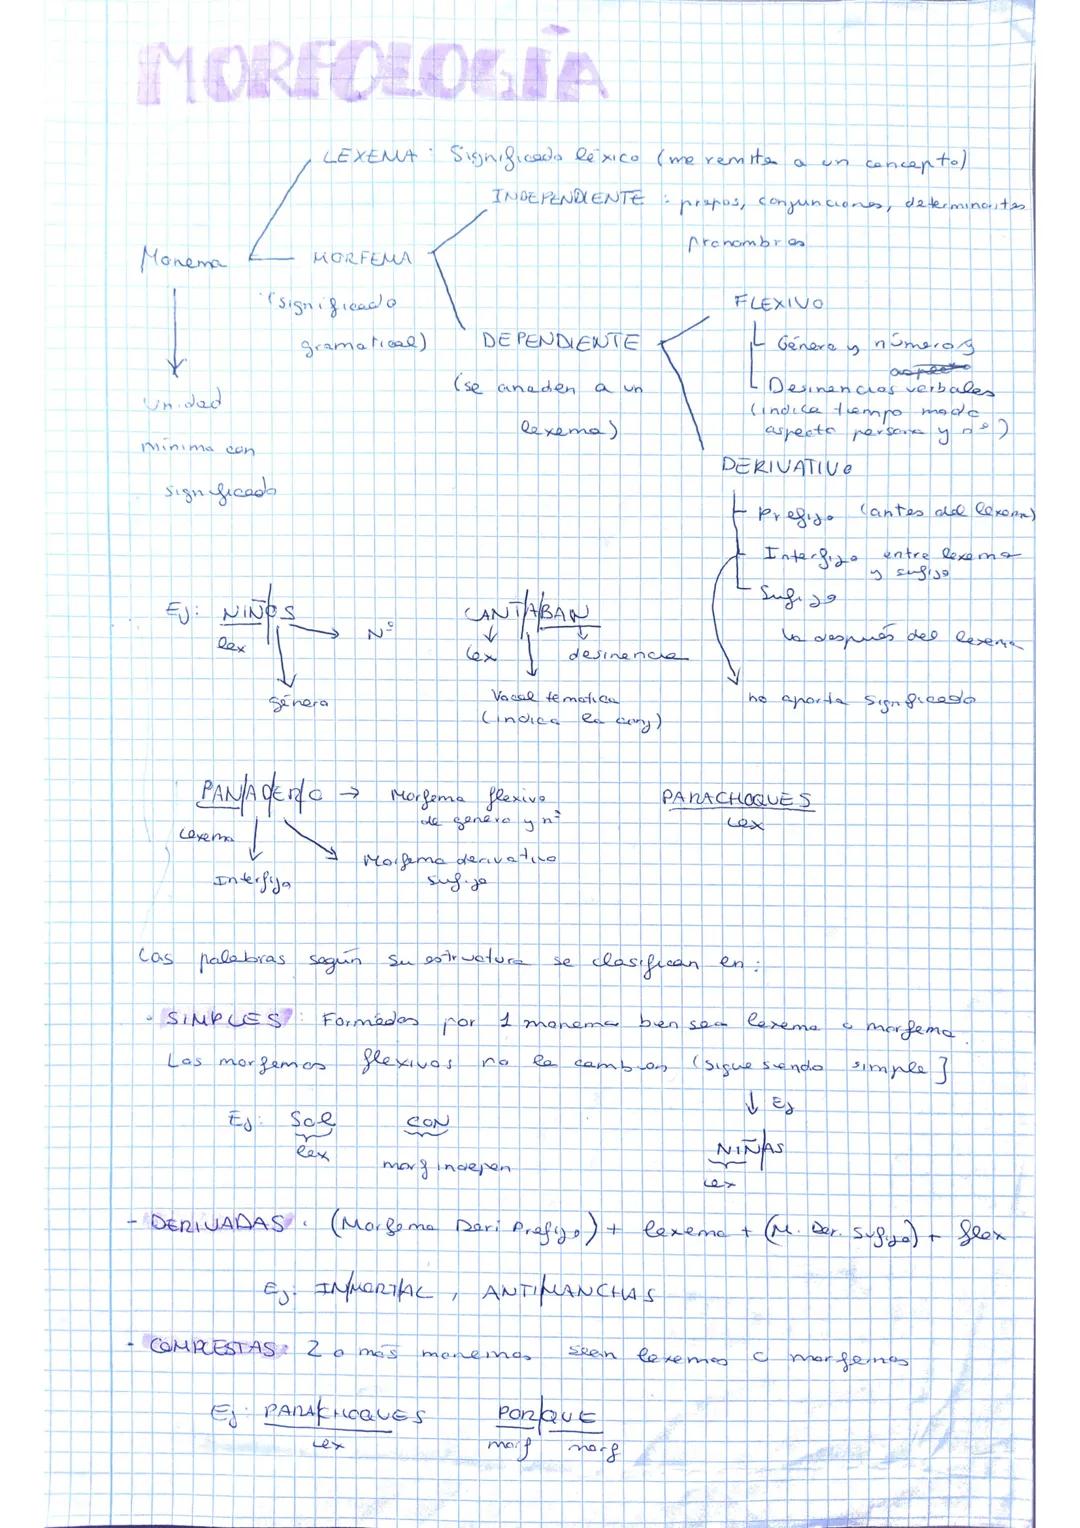 MORFOLOGÍA
LEXEMA : Significado léxico (me remite a un concepto)
INDEPENDIENTE : prepos, conjunciones, determinantes
pronombres
Monema
MORFEMA
(significado
gramatical)
FLEXIVO
Género y número y
aspecto
DEPENDIENTE
(se anaden a un
lexema)
Desinencias verbales
(indica tiempo modo
aspecto persona y nº)
Unidad
mínima con
significado
DERIVATIVO
Prefijo (antes del lexema)
Interfijo entre lexema
y sufijo
Sufijo
después del lexema
no aporta significado
Ej: NIÑ/O/S
lex
Nº
género
CANT/A/BAN
lex
desinencia
Vocal temática
(indica la conj)
PAN/AD/ER/O → Morfema flexivo
de género y nº
Lexema
Interfijo
Morfema derivativo
sufijo
PARACHOQUES
lex
Las palabras según su estructura se clasifican en :
- SIMPLES : Formados por 1 monema bien sea lexema o morfema.
Los morfemas flexivos no la cambian (sigue siendo simple]
↓ Ej
Ej: Sol
lex
CON
morf indepen
NIÑ/AS
lex
- DERIVADAS : (Morfema Deri Prefijo) + lexema + (M. Der. Sufijo) + flex
Ej: IN/MORTAL , ANTI/MANCHAS
- COMPUESTAS : 2 o más monemas sean lexemas o morfemas
Ej: PARA/CHOQUES
lex
POR/QUE
morf morf